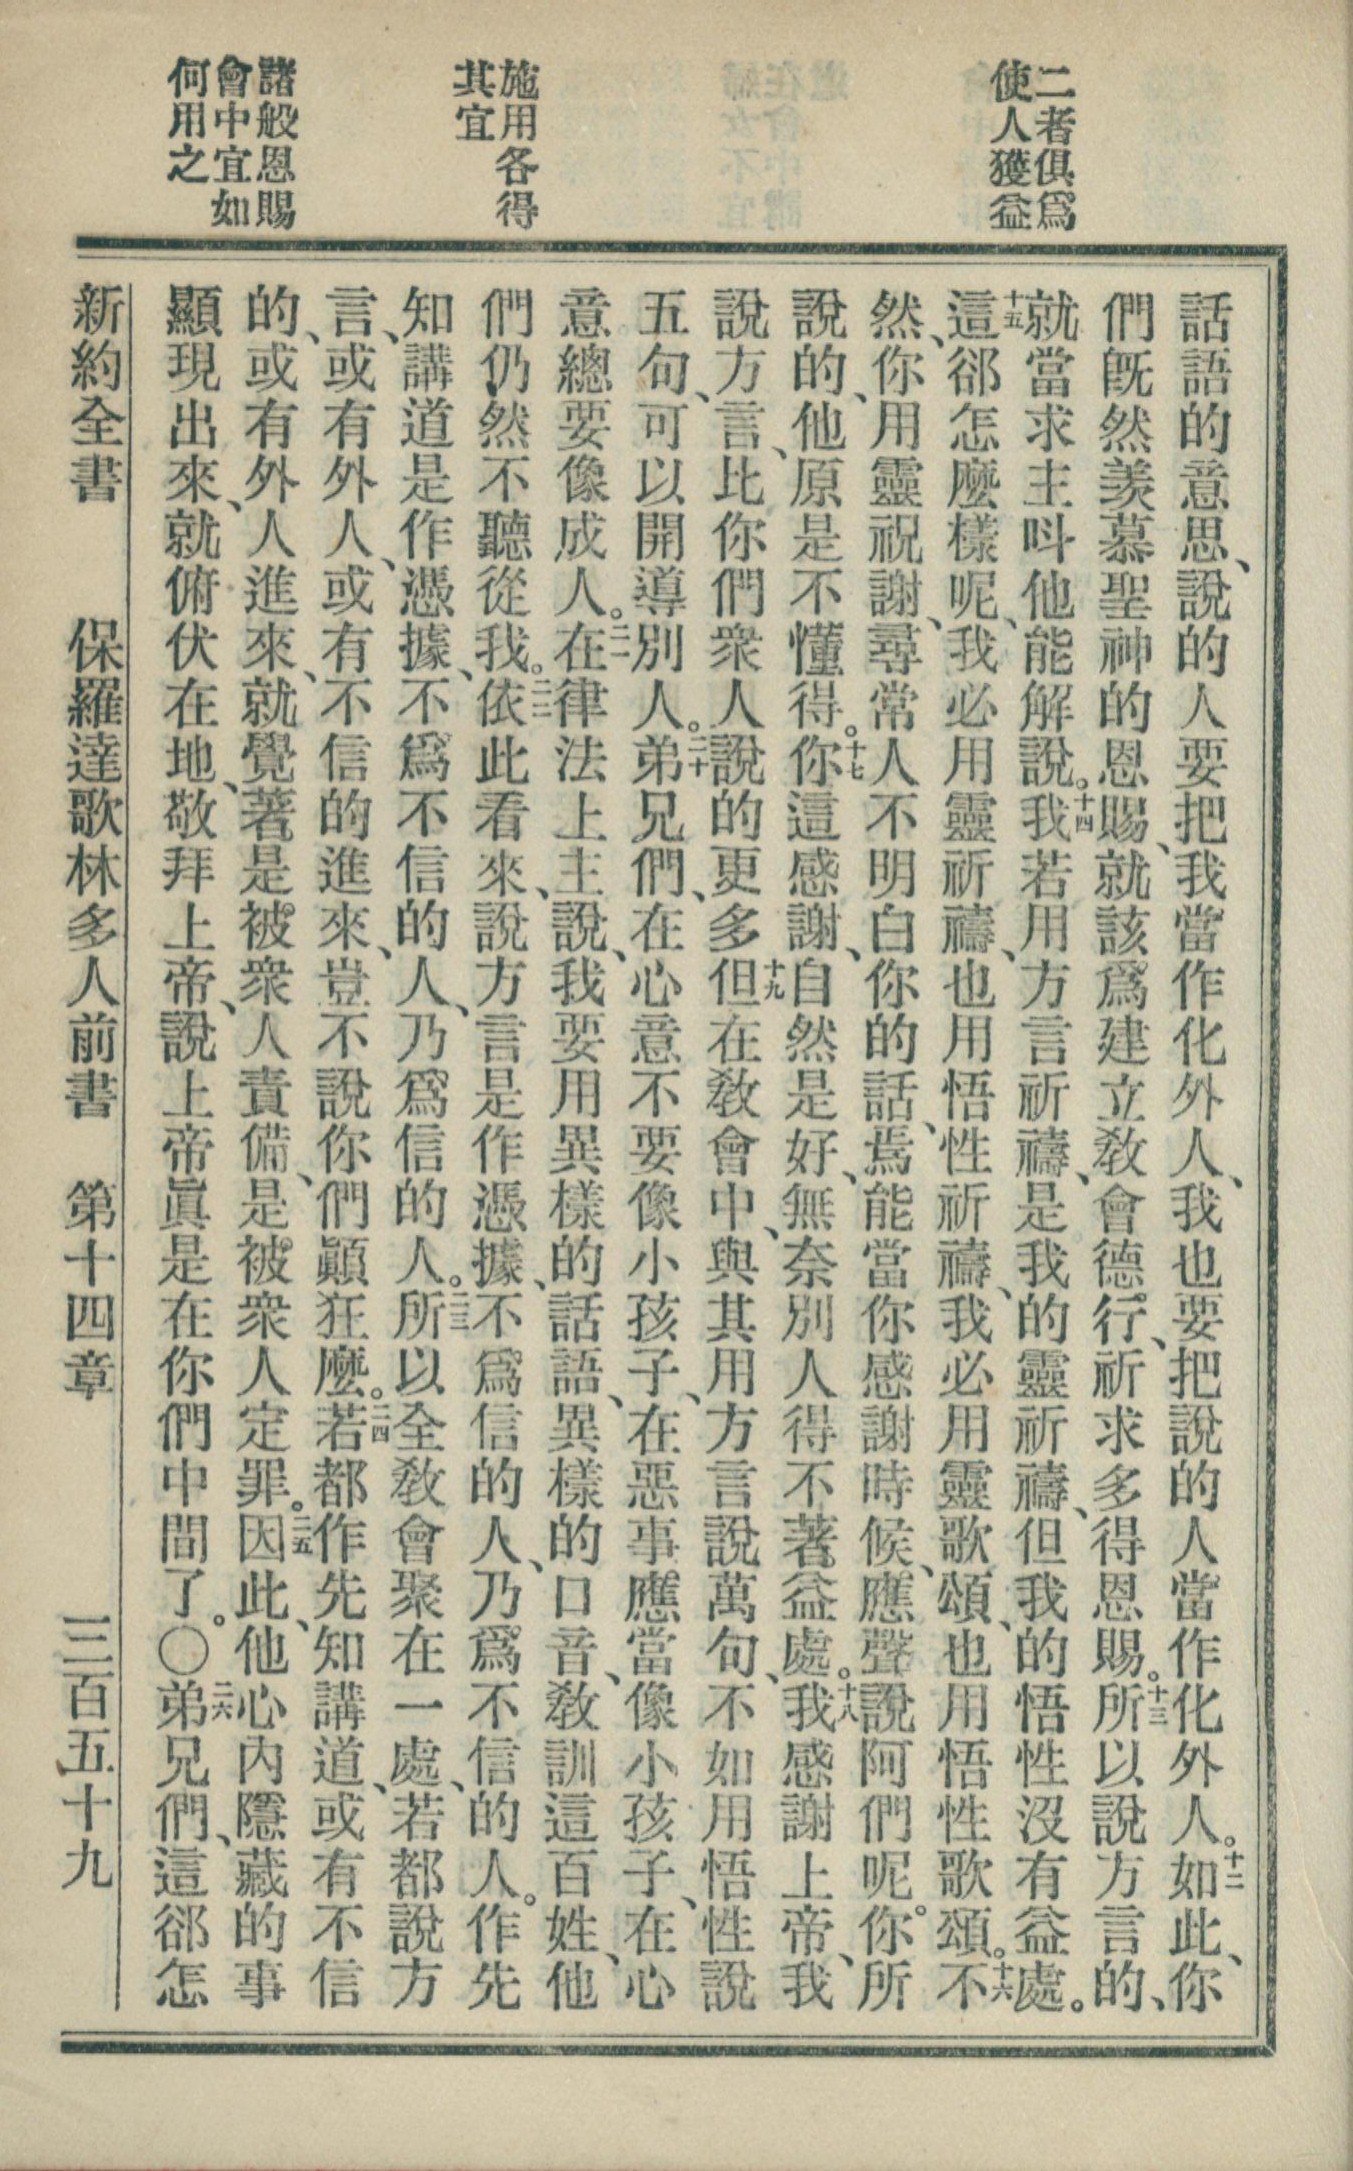 二者俱爲
使人獲益
施用各得
其宜
諸般恩賜
會中宜如
何用之
話語的意思、說的人要把我當作化外人、我也要把說的人當作化外人。十二如此、你
們旣然羨慕聖神的恩賜、就該爲建立敎會德行、祈求多得恩賜。十三所以說方言的、
就當求主呌他能解說。十四我若用方言祈禱、是我的靈祈禱、但我的悟性沒有益處。
十五這郤怎麼樣呢、我必用靈祈禱、也用悟性祈禱、我必用靈歌頌、也用悟性歌頌。十六不
然、你用靈祝謝、尋常人不明白你的話、焉能當你感謝時候、應聲說阿們呢。你所
說的、他原是不懂得。十七你這感謝、自然是好、無奈別人得不著益處。十八我感謝上帝、我
說方言、比你們衆人說的更多、十九但在敎會中、與其用方言說萬句、不如用悟性說
五句、可以開導別人。二十弟兄們、在心意不要像小孩子、在惡事應當像小孩子、在心
意總要像成人。二一在律法上主說、我要用異樣的話語、異樣的口音、敎訓這百姓、他
們仍然不聽從我。二二依此看來、說方言是作憑據、不爲信的人、乃爲不信的人。作先
知講道是作憑據、不爲不信的人、乃爲信的人。二三所以全敎會聚在一處、若都說方
言、或有外人、或有不信的進來、豈不說你們顚狂麼。二四若都作先知講道、或有不信
的、或有外人進來、就覺著是被衆人責備、是被衆人定罪。二五因此、他心內隱藏的事
顯現出來、就俯伏在地、敬拜上帝、說上帝眞是在你們中間了。〇二六弟兄們、這郤怎
新約全書　保羅達歌林多人前書　第十四章　三百五十九